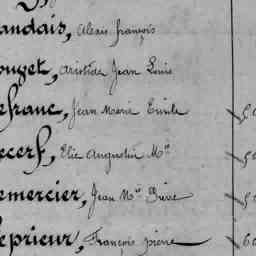 andais, Alexis françois
ouget, Aristide Jean Louis
efranc, Jean Marie Emile
ecerf, Elie Augustin Mie
emercier, Jean Mie Pierre
eprieur, François pierre